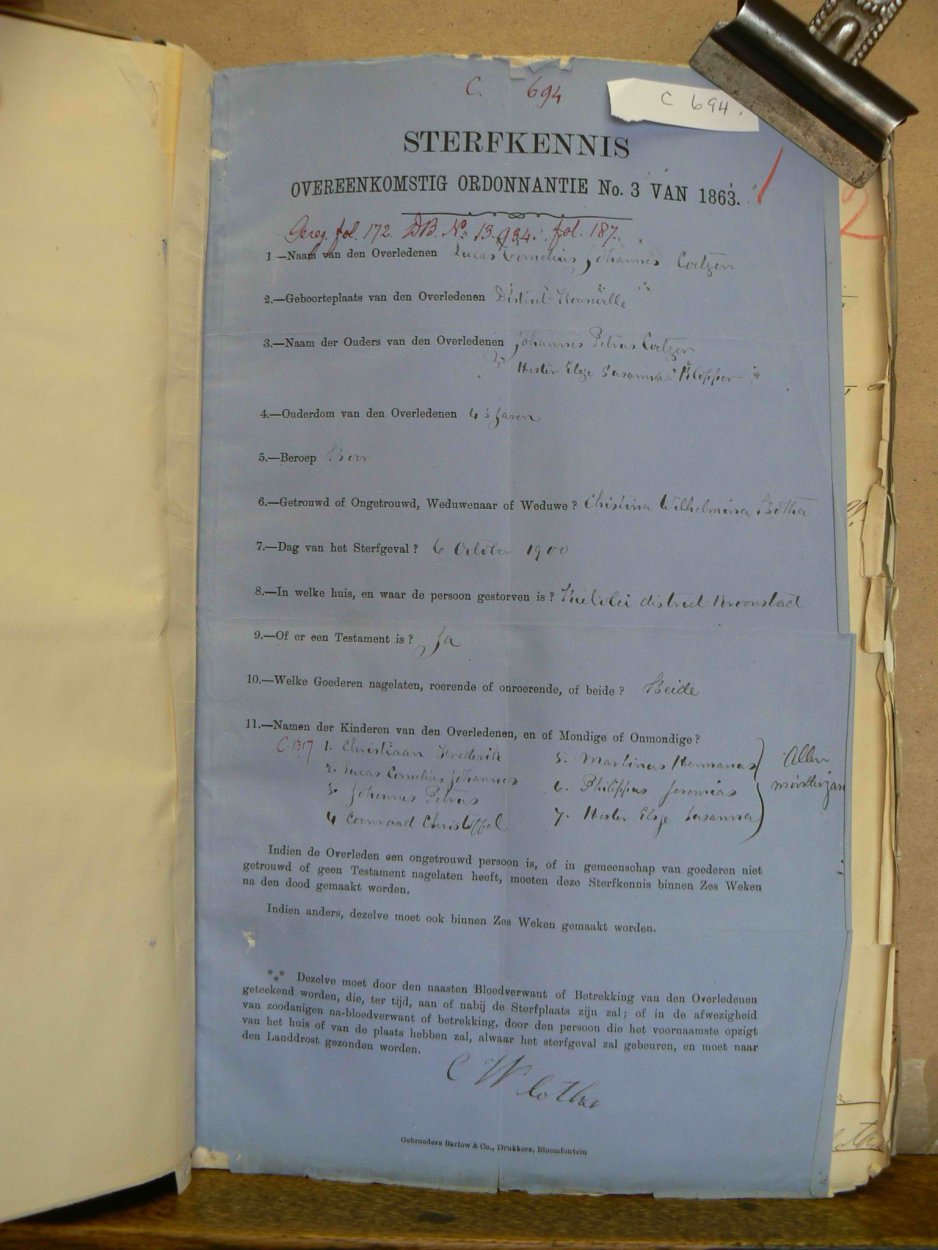 C. 694
C 694.
STERFKENNIS
OVEREENKOMSTIG ORDONNANTIE No. 3 VAN 1863.
1
2
Gereg. fol. 172. DB. No. 13. fol. 187.
1—Naam van den Overledenen Lucas Cornelius Johannes Coetzer
2.—Geboorteplaats van den Overledenen District Rouxville
3.—Naam der Ouders van den Overledenen Johannes Petrus Coetzer
Hester Elsje Susanna Klopper
4.—Ouderdom van den Overledenen 43 Jaren
5.—Beroep Boer
6.—Getrouwd of Ongetrouwd, Weduwenaar of Weduwe? Christina Wilhelmina Botha
7.—Dag van het Sterfgeval? 6 October 1900
8.—In welke huis, en waar de persoon gestorven is? district Kroonstad
9.—Of er een Testament is? Ja
10.—Welke Goederen nagelaten, roerende of onroerende, of beide? Beide
11.—Namen der Kinderen van den Overledenen, en of Mondige of Onmondige?
C.1317 1. Christiaan Frederik
2. Lucas Cornelius Johannes
3. Johannes Petrus
4 Coenraad Christoffel
5. Martinus Hermanus
6. Philippus Jeremias
7. Hester Elsje Susanna
Allen
minderjan
Indien de Overleden een ongetrouwd persoon is, of in gemeenschap van goederen niet
getrouwd of geen Testament nagelaten heeft, moeten deze Sterfkennis binnen Zes Weken
na den dood gemaakt worden.
Indien anders, dezelve moet ook binnen Zes Weken gemaakt worden.
*** Dezelve moet door den naasten Bloedverwant of Betrekking van den Overledenen
geteekend worden, die, ter tijd, aan of nabij de Sterfplaats zijn zal; of in de afwezigheid
van zoodanigen na-bloedverwant of betrekking, door den persoon die het voornaamste opzigt
van het huis of van de plaats hebben zal, alwaar het sterfgeval zal gebeuren, en moet naar
den Landdrost gezonden worden.
C W Botha
Gebroeders Barlow & Co., Drukkers, Bloemfontein